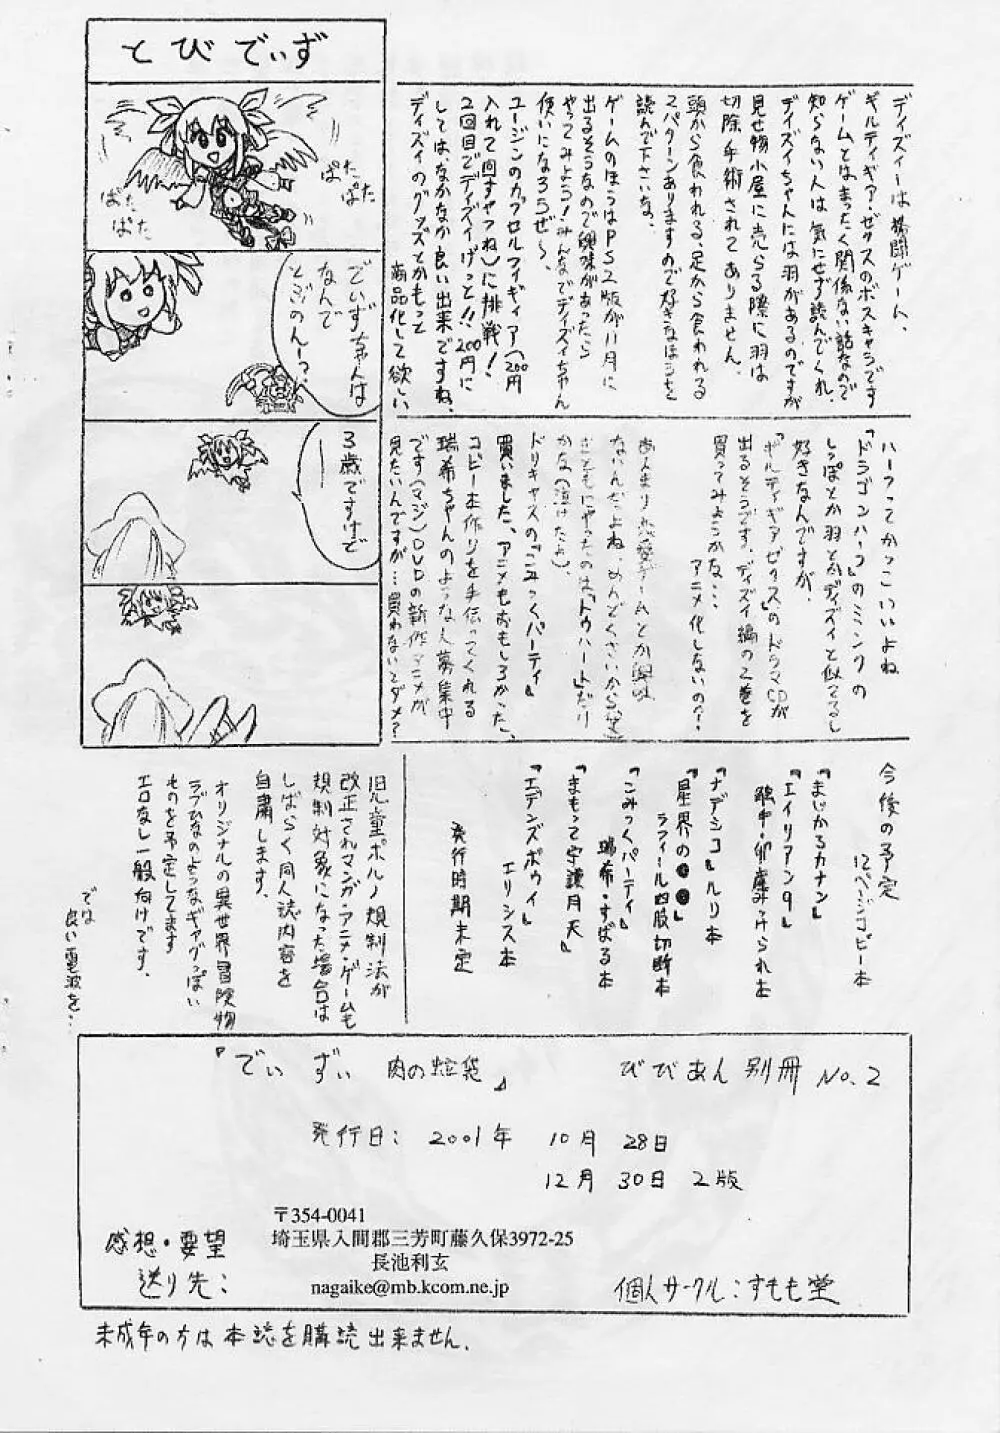 とびでぃず
ぱた
ぱた
ぱた
ぱた
でぃずちゃんは
なんで
とぶのんー?
3歳ですけど
――
ディズィーは格闘ゲーム、
ギルティギア・ゼクスのボスキャラです
ゲームとはまったく関係ない話なので
知らない人は気にせず読んでくれ、
ディズィちゃんには羽があるのですが
見せ物小屋に売らる際に羽は
切除手術されてありません。
頭から食われる、足から食われる
2パターンありますので好きなほうを
読んで下さいな。
ゲームのほうはPS2版が11月に
出るそうなので興味があったら
やってみよう!みんなでディズィちゃん
使いになろうぜ〜、
ユージンのカプセルフィギィア(200円
入れて回すヤツね)に挑戦!
2回目でディズィげっと!!200円に
しては、なかなか良い出来ですね、
ディズィのグッズとかもって
商品化して欲しい
ハーフってかっこいいよね
『ドラゴンハーフ』のミンクの
しっぽとか羽とかディズィと似てるし
好きなんですが、
『ギルティギアゼクス』のドラマCDが
出るそうです、ディズィ編の2巻を
買ってみようかな…
アニメ化しないの?
あんまり恋愛ゲームとか興味
ないんだよね、めんどくさいから(笑)
まともにやったのは、『トゥハート』だけ
かな(泣けたよ)、
ドリキャスの『こみっくパーティ』
買いました、アニメもおもしろかった、
コピー本作りを手伝ってくれる
瑞希ちゃんのような人募集中
です(マジ)DVDの新作アニメが
見たいんですが…買わないとダメ?
今後の予定
12ページコピー本
『まじかるカナン』
『エイリアン9』
『ナデシコ』ルリ本
『星界の●●』
ラフィール四肢切断本
『こみっくパーティ』
瑞希・すばる本
『まもって守護月天』
『エデンズボゥイ』
エリシス本
発行時期未定
児童ポルノ規制法が
改正されマンガ・アニメ・ゲームも
規制対象になった場合は
しばらく同人誌内容を
自粛します。
オリジナルの異世界冒険物
ラブひなのようなギャグっぽい
ものを予定してます
エロなし一般向けです。
では
良い電波を…
『でぃずぃ 肉の 袋』 びびあん 別冊 No.2
発行日: 2001年 10月 28日
12月 30日 2版
〒354-0041
埼玉県入間郡三芳町藤久保3972-25
長池利玄
nagaike@mb.kcom.ne.jp
感想・要望
送り先:
個人サークル:すもも堂
未成年の方は本誌を購読出来ません.